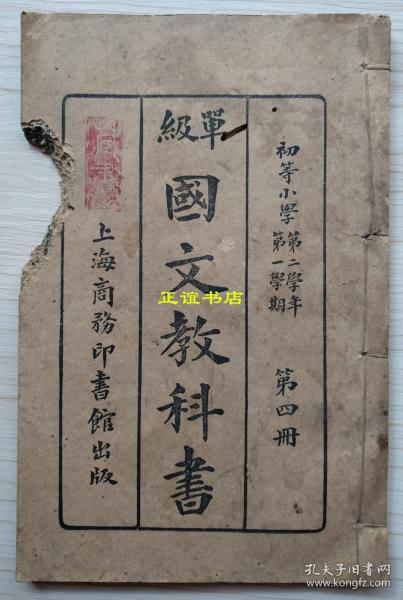 初等小學 第二學年
第一學期
第四冊
單級
國文教科書
上海商務印書館出版
正谊书店
孔夫子旧书网
www.kongfz.com